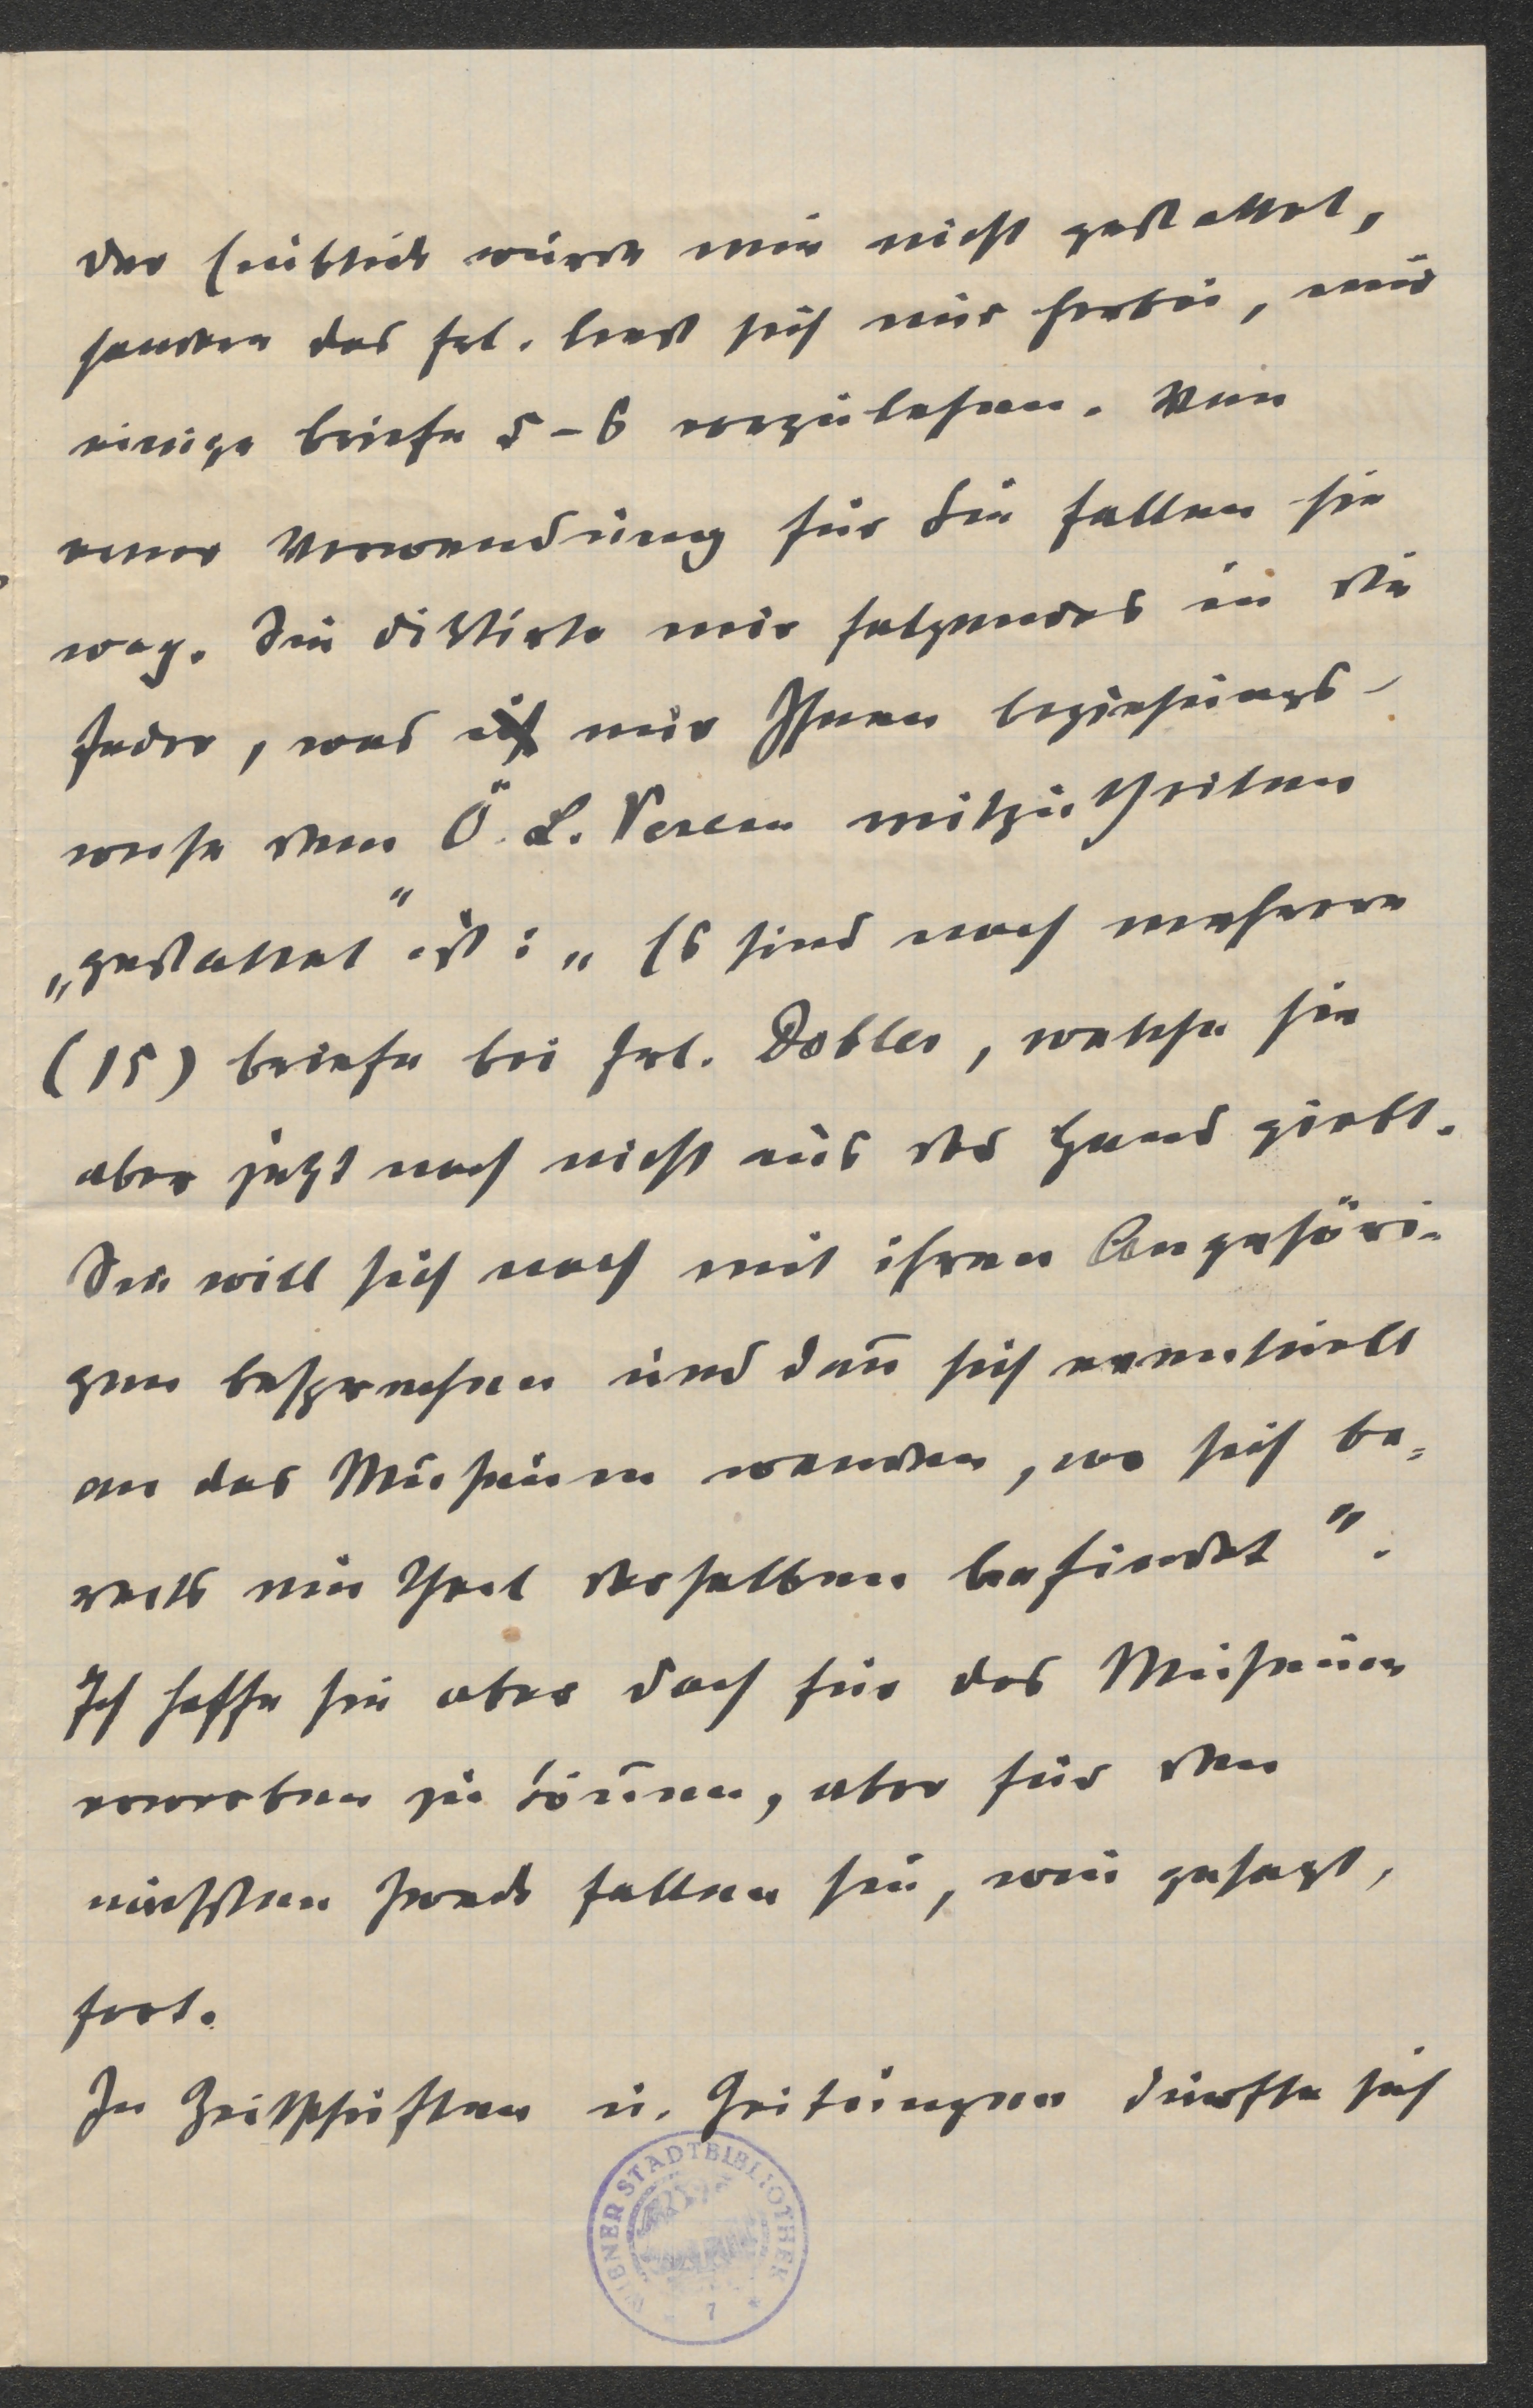 der Einblick wurde mir nicht gestattet,
sondern das Frl. liess sich nur herbei, mir
einige Briefe 5–6 vorzulesen. Von
einer Verwendung für Sie fallen sie
weg. Sie diktirte mir folgendes in die
Feder, was ich nur Ihnen beziehungs-
weise dem Ö. L. Verein mitzutheilen
„gestattet“ ist: „Es sind noch mehrere
(15) Briefe bei Frl. Dobler, welche sie
aber jetzt noch nicht aus der Hand giebt.
Sie will sich noch mit ihren Angehöri-
gen besprechen und dan̄ sich eventuell
an das Museum wenden, wo sich be-
reits ein Theil derselben befindet“.
Ich hoffe sie aber doch für das Museum
erwerben zu kön̄en, aber für den
nächsten Zweck fallen sie, wie gesagt,
fort.
In Zeitschriften u. Zeitungen dürfte sich
WIENER STADTBIBLIOTHEK
* 7 *